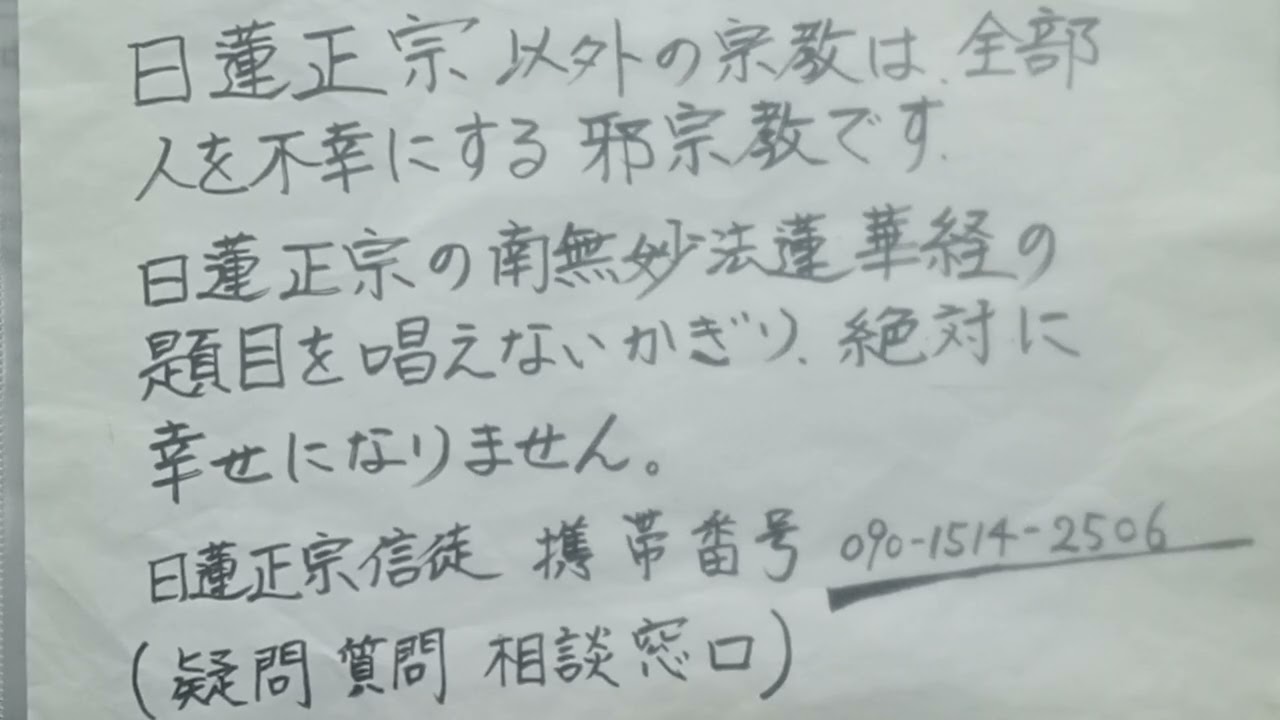 日蓮正宗以外の宗教は、全部
人を不幸にする邪宗教です.
日蓮正宗の南無妙法蓮華経の
題目を唱えないかぎり、絶対に
幸せになりません。
日蓮正宗信徒 携帯番号 090-1514-2506
(疑問 質問 相談窓口)